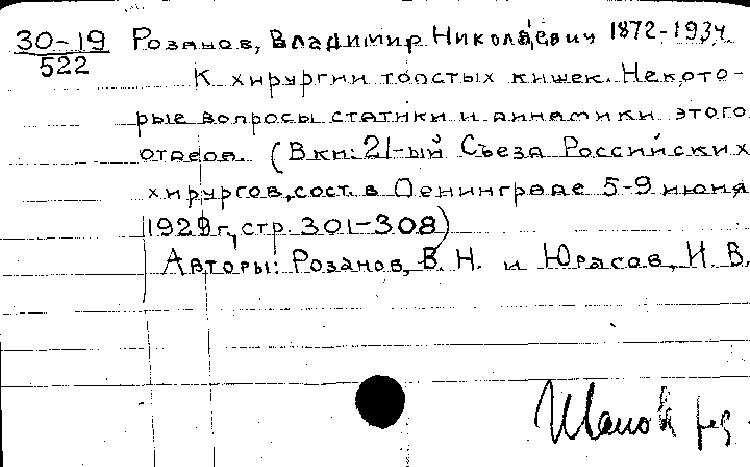 30-19 Розанов, Владимир Николаевич 1872-1934
522
К хирургии толстых кишек. Некото-
рые вопросы статики и динамики этого
отдела. (В кн: 21-ый Съезд Российских
хирургов, сост. в Ленинграде 5-9 июня
1929 г, стр. 301-308)
Авторы: Розанов, В. Н. и Юрасов, И. В.
Иванов ред.